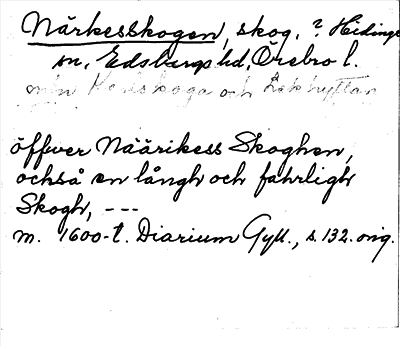 Närkesskogen, skog, ? Hidinge
sn, Edsbergs hd, Örebro l.
mln Karlskoga och Lekhyttan
öffver Näärikess Skoghen,
också en långh och fahrligh
Skogh, ---
m. 1600-t. Diarium Gyll., s. 132. orig.